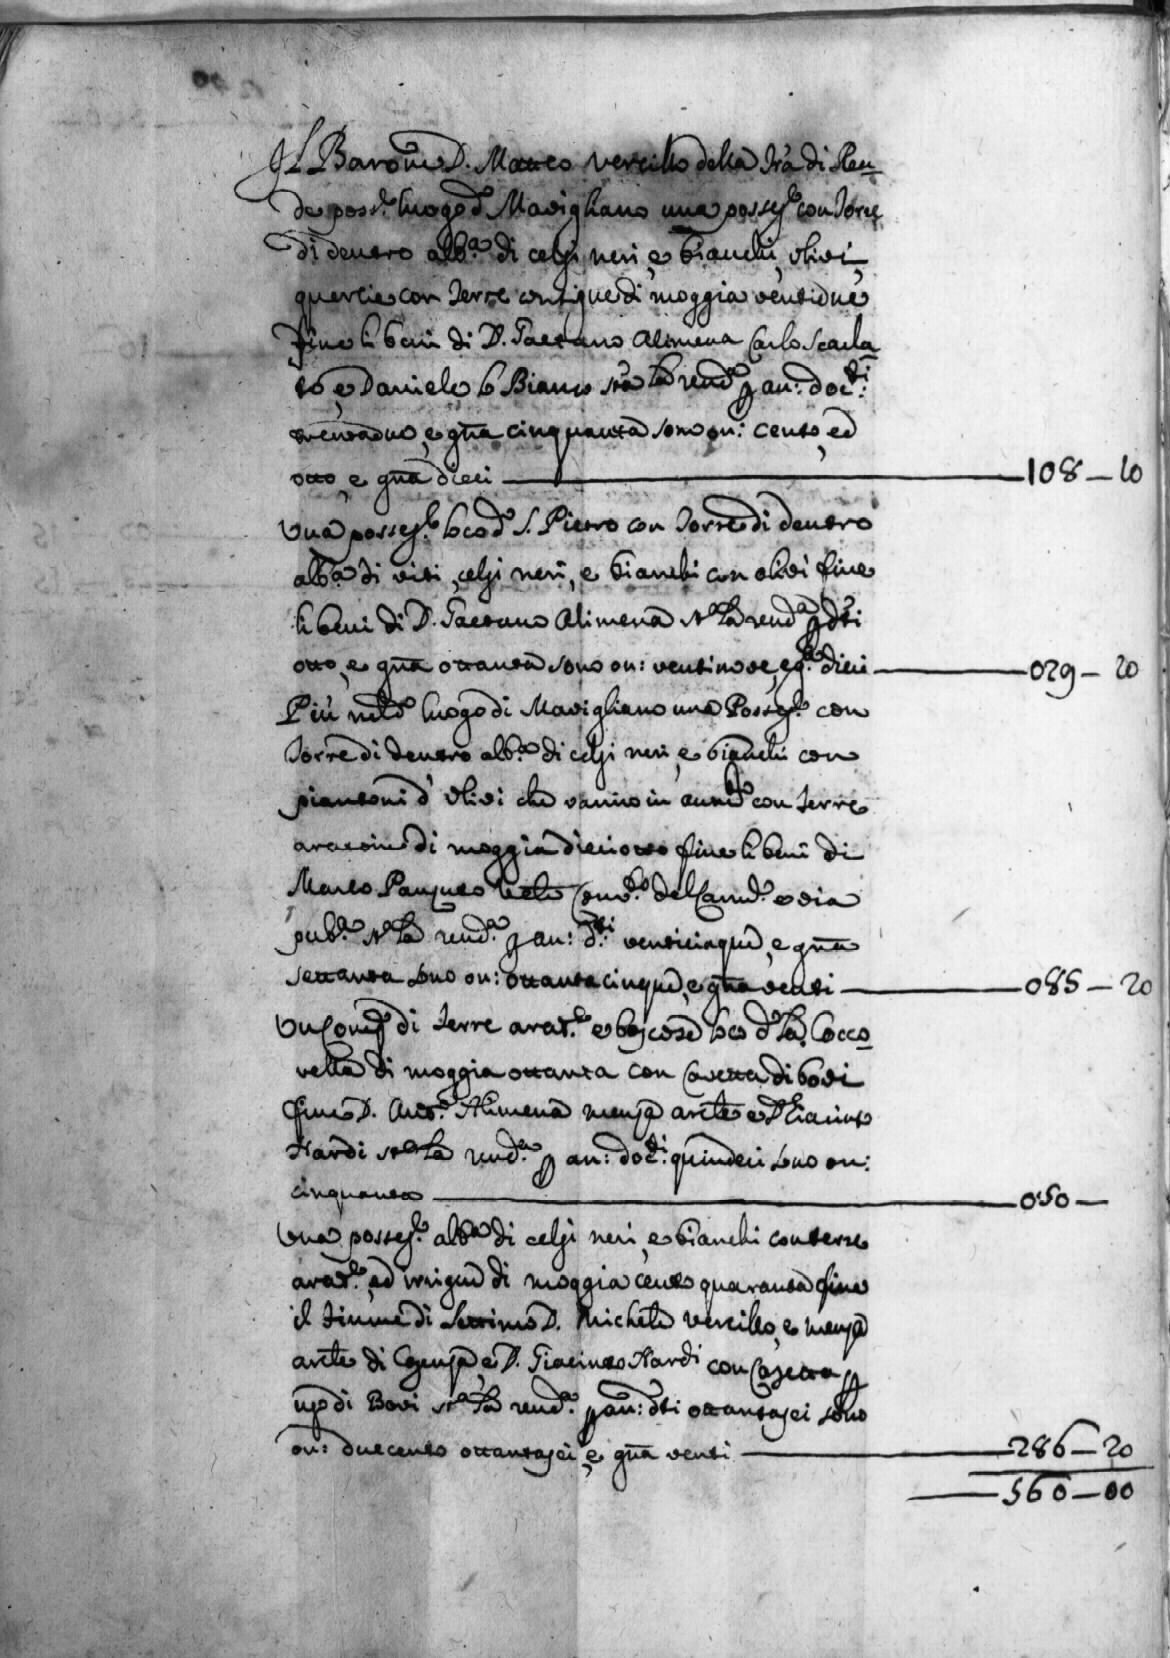 Il Barone D. Matteo Vercillo della Trã di Ren=
de poss.e luogo d.o Mavigliano una posses.e con Torre
di dentro alb.a di celsi neri, e bianchi, olivi,
quercie con Terre contigue di moggia ventidue
fine li beni di D. Gaetano Alimena Carlo Scarla=
to, e Daniele lo Bianco st.a la rend.a p an: doc.ti:
trentadue, e gña cinquanta sono on: cento, ed
otto, e gña dieci — 108 — 10
Una posses.e loco d.o S. Pietro con Torre di dentro
alb.a di viti, celsi neri, e bianchi con olivi fine
li beni di D. Gaetano Alimena st.a la rend.a p dti
otto, e gña ottanta sono on: ventinove, e g.a dieci — 029 — 10
Più nel d.o luogo di Mavigliano una Posses.e con
Torre di dentro alb.a di celsi neri, e bianchi con
piantoni d'olivi che vanno in aum.to con Terre
aratorie di moggia dieciotto fine li beni di
Marco Conv.to del Carm.e e via
pub.a st.a la rend.a p an: d.ti venticinque, e gña
settanta sono on: ottantacinque, e gña venti — 085 — 20
Un Comp.o di Terre arat.e e boscose loco d.o la Cocco=
vella di moggia ottanta con Casetta di bovi
fine D. Ant.o Alimena mensa arcle e D. Giacinto
Nardi st.a la rend.a p an: doc.ti: quindeci sono on:
cinquanta — 050 —
Una posses.e alb.a di celsi neri, e bianchi con terre
arat.e, ed irrigue di moggia cento quaranta fine
il Fiume di Settimo D. Michele Vercillo, e mensa
arcle di Cosenza, e D. Giacinto Nardi con Casetta p
uso di Bovi st.a la rend.a p an: dti ottantasei sono
on: duecento ottantasei, e gña venti — 286 — 20
— 560 — 00